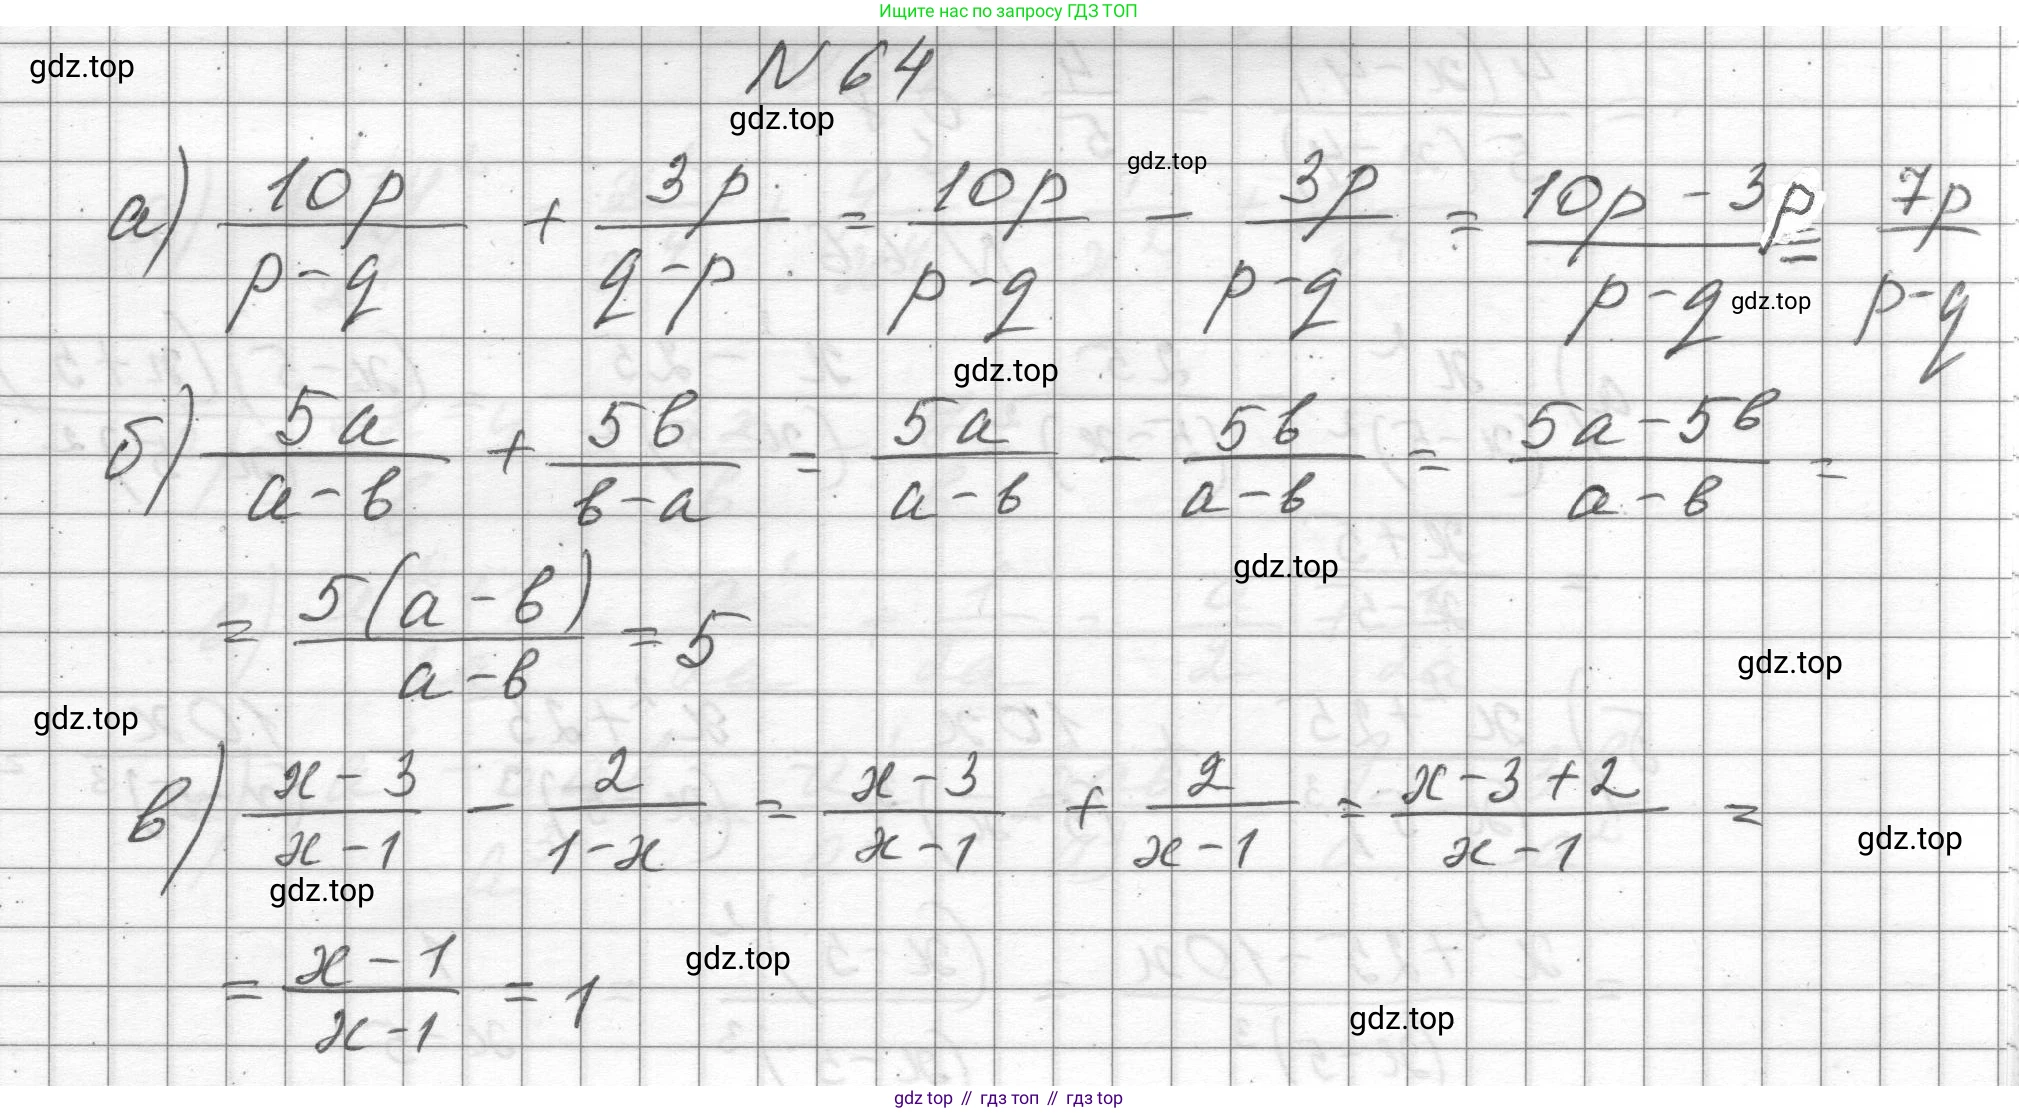 Ищите нас по запросу ГДЗ ТОП
gdz.top
N 64
gdz.top
gdz.top
а) 10p/(p-q) + 3p/(q-p) = 10p/(p-q) - 3p/(p-q) = (10p-3p)/(p-q) = 7p/(p-q)
gdz.top
gdz.top
б) 5a/(a-в) + 5в/(в-a) = 5a/(a-в) - 5в/(a-в) = (5a-5в)/(a-в) =
gdz.top
= 5(a-в)/(a-в) = 5
gdz.top
gdz.top
в) (x-3)/(x-1) - 2/(1-x) = (x-3)/(x-1) + 2/(x-1) = (x-3+2)/(x-1) =
gdz.top
gdz.top
= (x-1)/(x-1) = 1
gdz.top
gdz.top
gdz top // гдз топ // гдз top